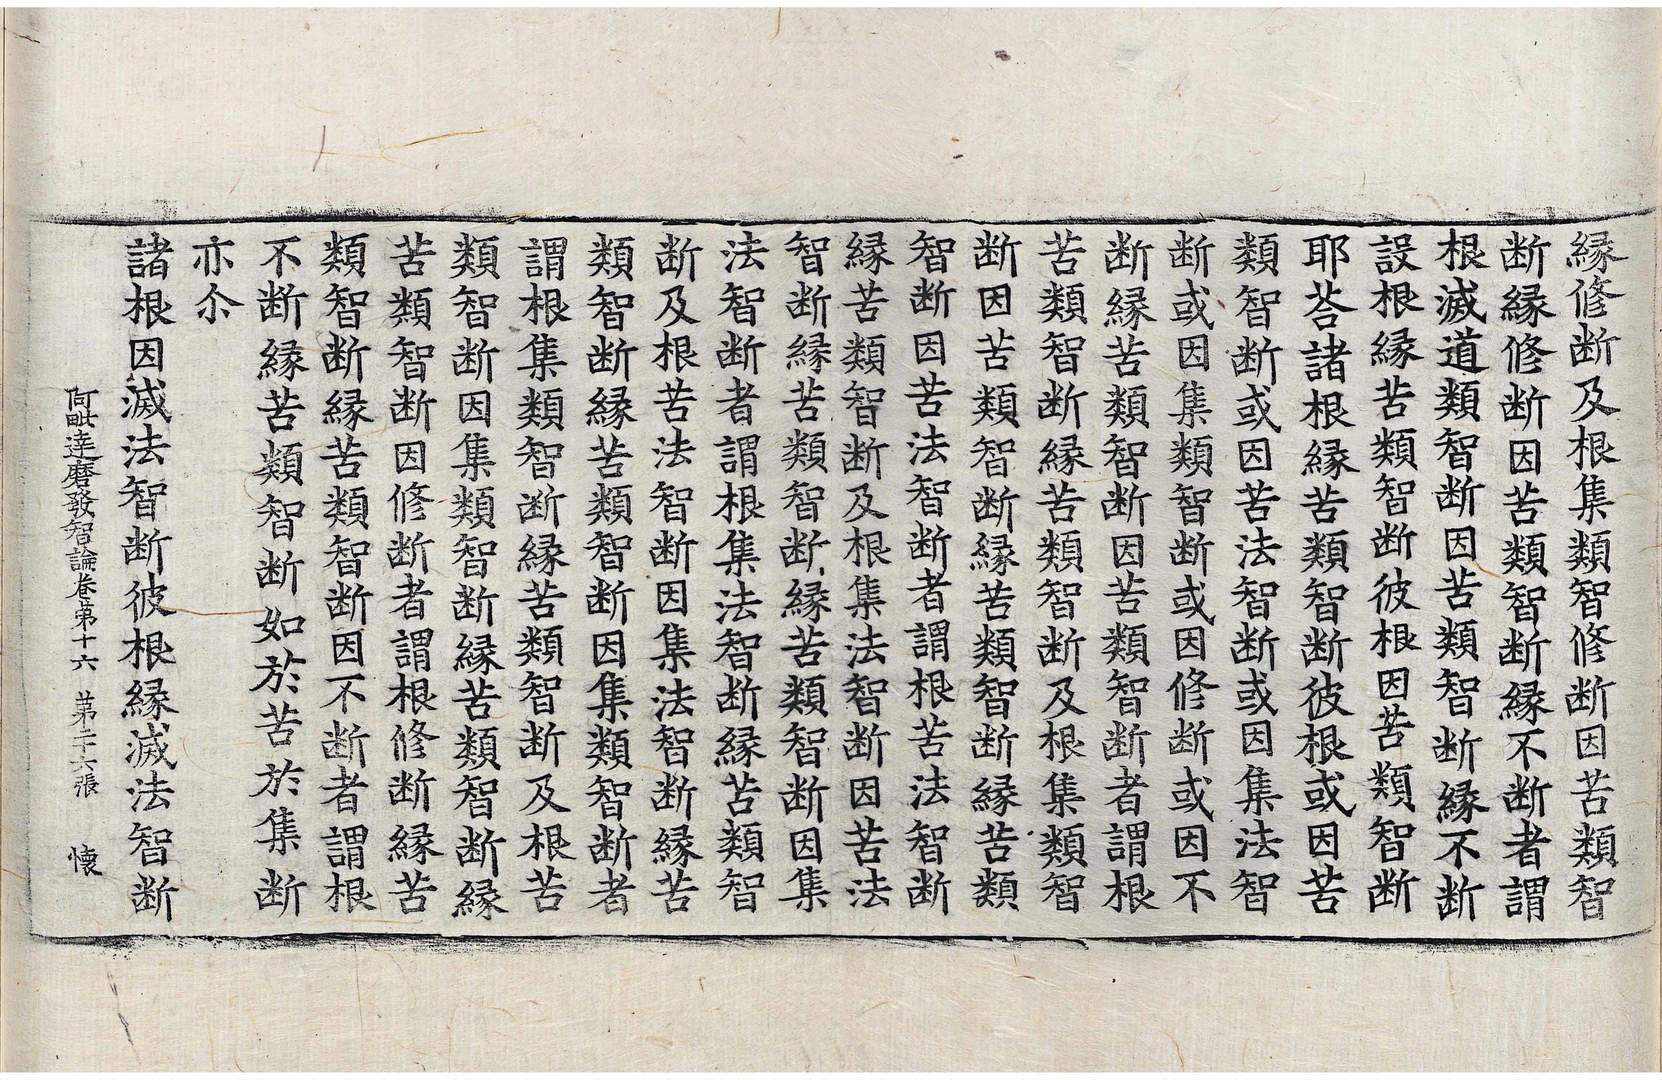 縁修断及根集類智修断因苦類智
断縁修断因苦類智断縁不断者謂
根滅道類智断因苦類智断縁不断
設根縁苦類智断彼根因苦類智断
耶荅諸根縁苦類智断彼根或因苦
類智断或因苦法智断或因集法智
断或因集類智断或因修断或因不
断縁苦類智断因苦類智断者謂根
苦類智断縁苦類智断及根集類智
断因苦類智断縁苦類智断縁苦類
智断因苦法智断者謂根苦法智断
縁苦類智断及根集法智断因苦法
智断縁苦類智断縁苦類智断因集
法智断者謂根集法智断縁苦類智
断及根苦法智断因集法智断縁苦
類智断縁苦類智断因集類智断者
謂根集類智断縁苦類智断及根苦
類智断因集類智断縁苦類智断縁
苦類智断因修断者謂根修断縁苦
類智断縁苦類智断因不断者謂根
不断縁苦類智断如於苦於集断
亦尒
諸根因滅法智断彼根縁滅法智断
阿毗達磨發智論卷苐十六 苐二十六張 懷